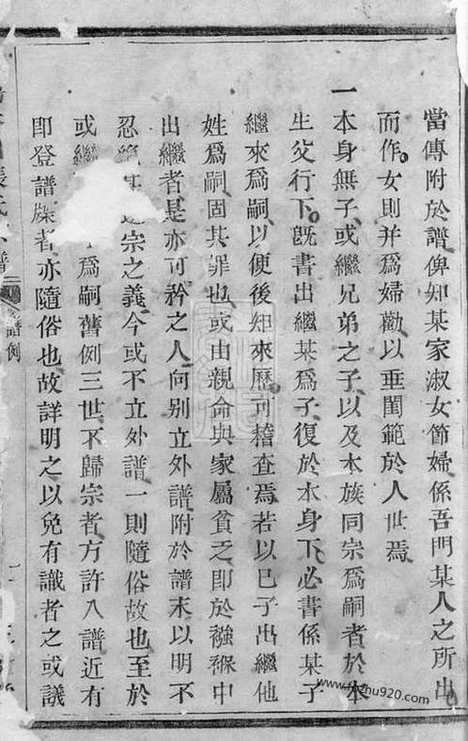 當傳附於譜俾知某家淑女節婦係吾門某人之所出
而作女則并爲婦勸以垂閨範於人世焉
一本身無子或繼兄弟之子以及本族同宗爲嗣者於本
生父行下旣書出繼某爲子復於本身下必書係某子
繼來爲嗣以便後知來歷可稽查焉若以已子出繼他
姓爲嗣固其罪也或由親命與家屬貧乏卽於襁褓中
出繼者是亦可矜之人向别立外譜附於譜末以明不
忍 宗之義今或不立外譜一則隨俗故也至於
或繼 爲嗣舊例三世不歸宗者方許入譜近有
即登譜牒者亦隨俗也故詳明之以免有識者之或議
張氏 譜
譜例